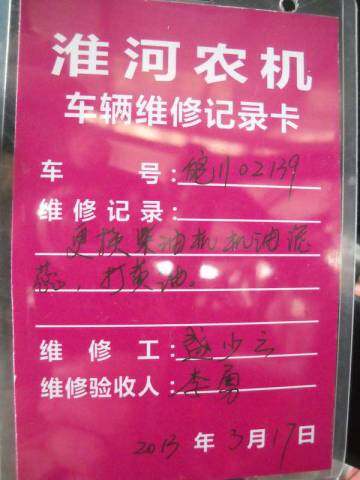 淮河农机
车辆维修记录卡
车 号:川02139
维修记录:
更换柴油机机油滤
芯，打黄油。
维 修 工:少云
维修验收人:李勇
2013 年 3 月 17 日